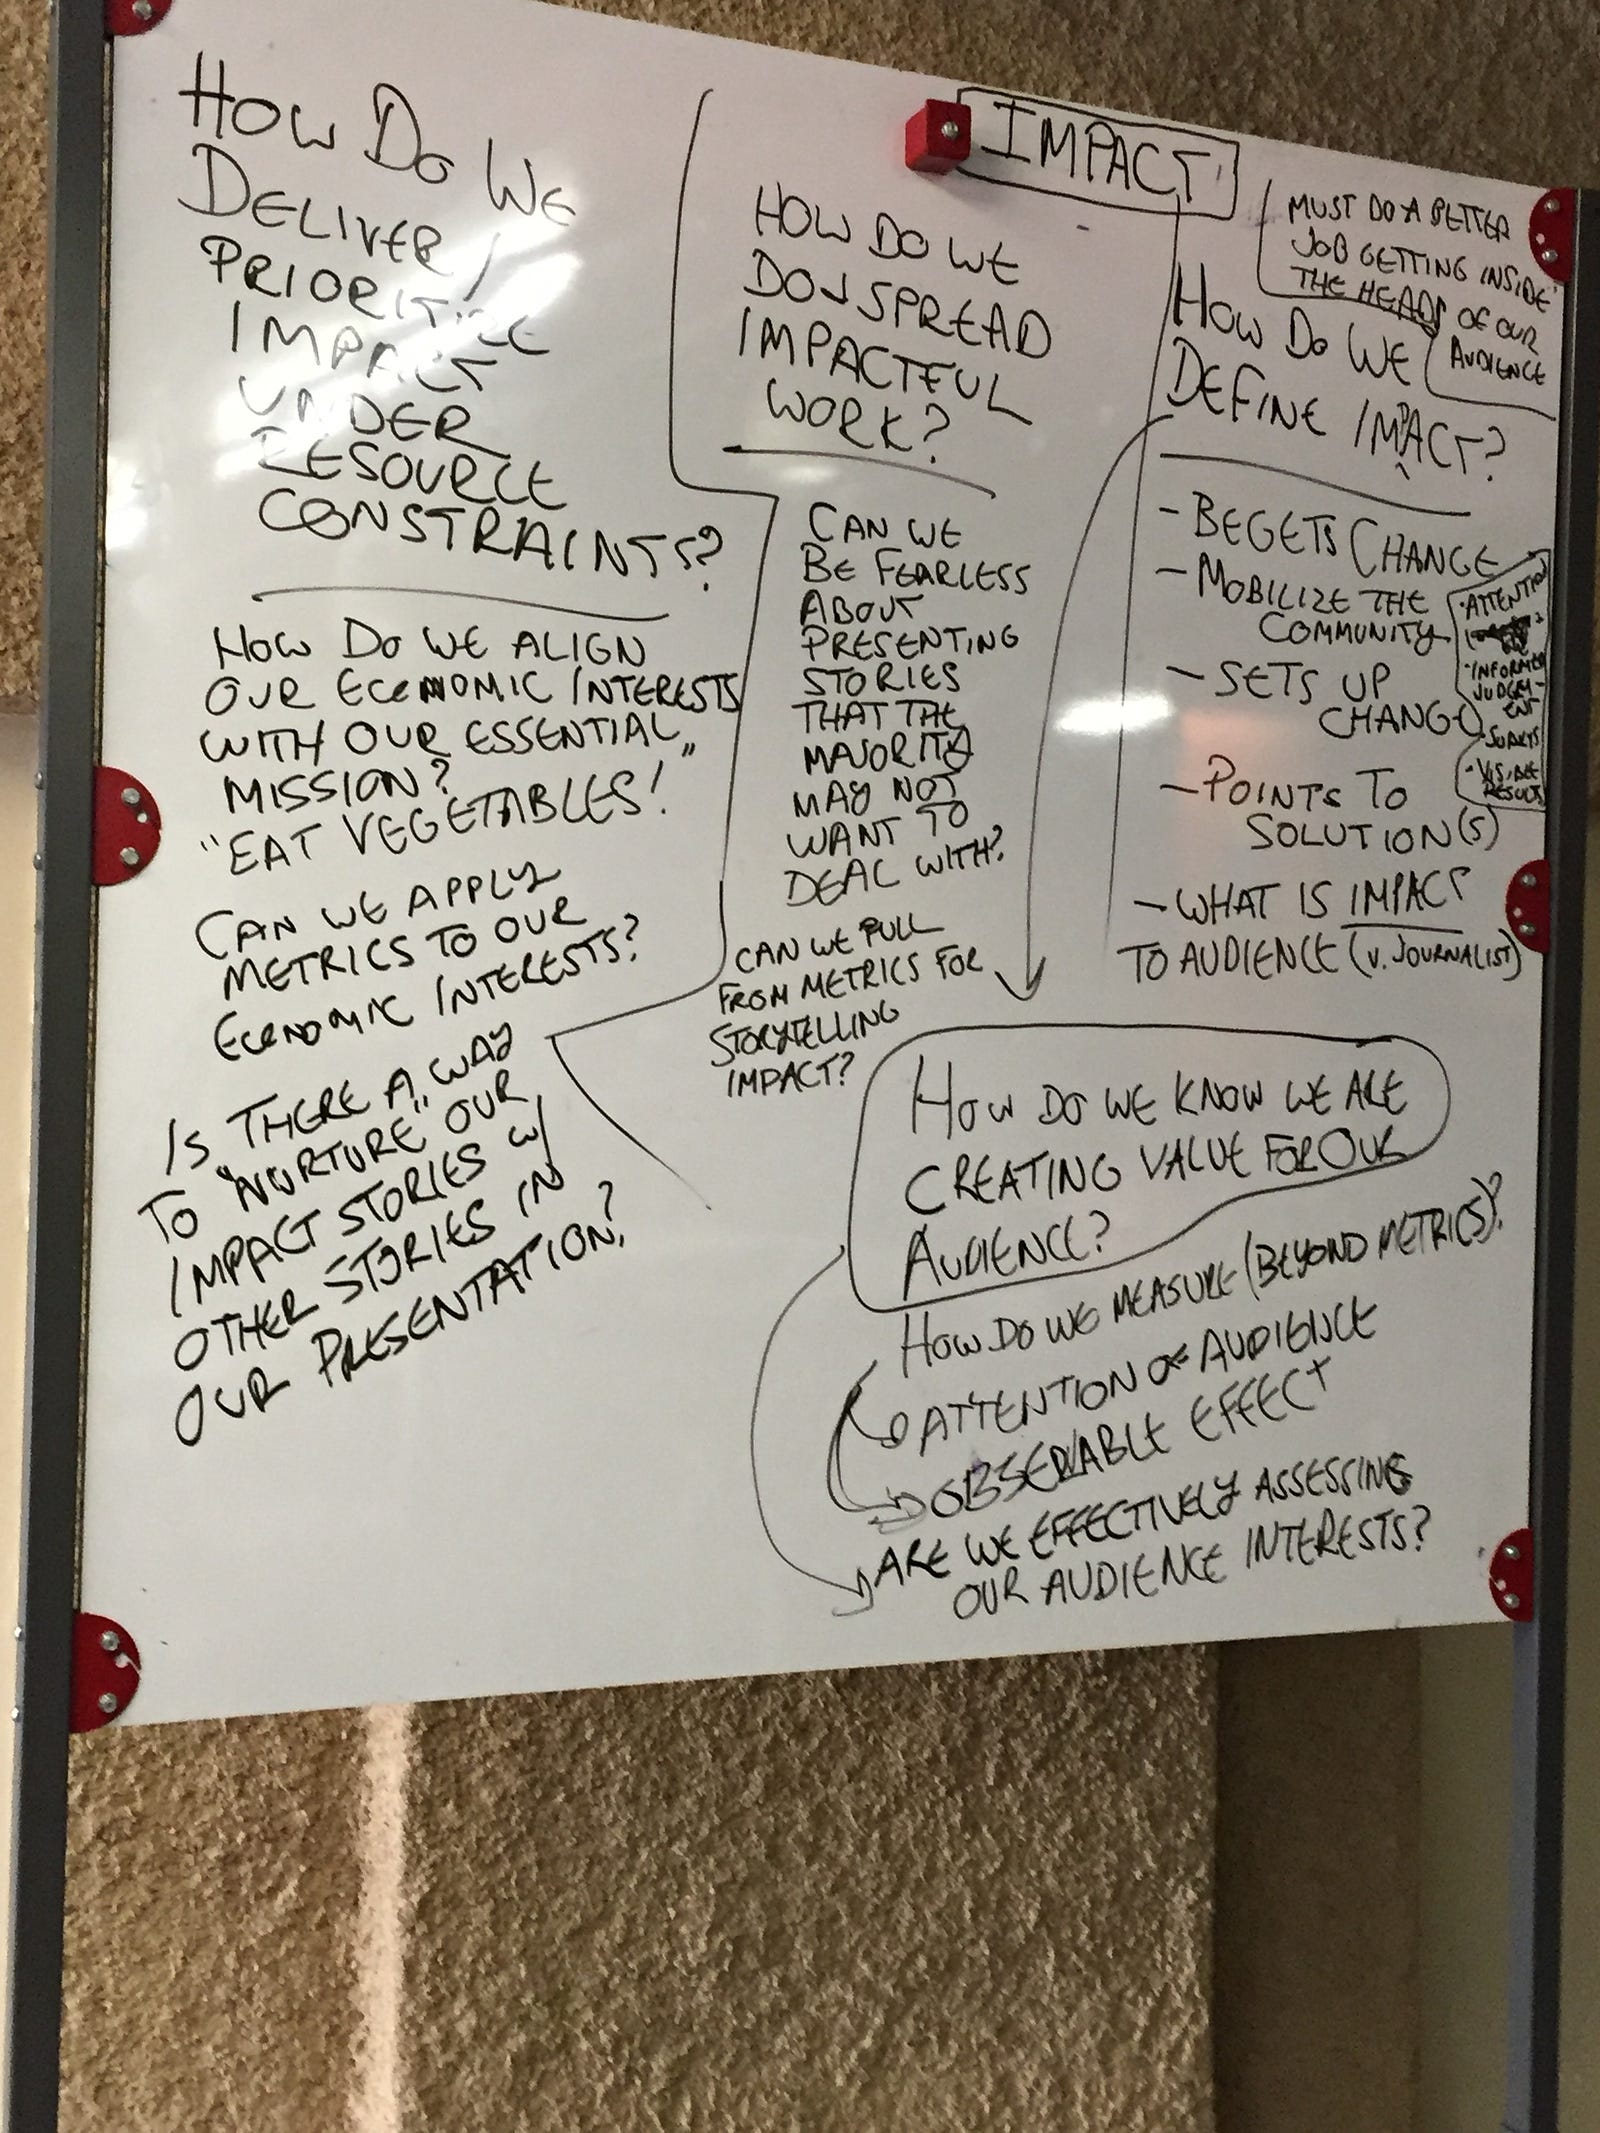 HOW DO WE
DELIVER /
PRIORITIZE
IMPACT
UNDER
RESOURCE
CONSTRAINTS?
HOW DO WE ALIGN
OUR ECONOMIC INTERESTS
WITH OUR ESSENTIAL
MISSION? "
"EAT VEGETABLES!
CAN WE APPLY
METRICS TO OUR
ECONOMIC INTERESTS?
IS THERE A WAY
TO "NURTURE" OUR
IMPACT STORIES W/
OTHER STORIES IN
OUR PRESENTATION?
IMPACT
HOW DO WE
DO SPREAD
IMPACTFUL
WORK?
CAN WE
BE FEARLESS
ABOUT
PRESENTING
STORIES
THAT THE
MAJORITY
MAY NOT
WANT TO
DEAL WITH?
CAN WE PULL
FROM METRICS FOR
STORYTELLING
IMPACT?
MUST DO A BETTER
JOB GETTING INSIDE
THE HEADS OF OUR
AUDIENCE
HOW DO WE
DEFINE IMPACT?
- BEGETS CHANGE
- MOBILIZE THE
COMMUNITY
- SETS UP
CHANGE
- POINTS TO
SOLUTION(S)
- WHAT IS IMPACT
TO AUDIENCE (V. JOURNALIST)
· ATTENTION
· INFORMED
JUDGEM-
ENT
· VISIBLE
RESULTS
HOW DO WE KNOW WE ARE
CREATING VALUE FOR OUR
AUDIENCE?
HOW DO WE MEASURE (BEYOND METRICS)?
ATTENTION OF AUDIENCE
OBSERVABLE EFFECT
ARE WE EFFECTIVELY ASSESSING
OUR AUDIENCE INTERESTS?